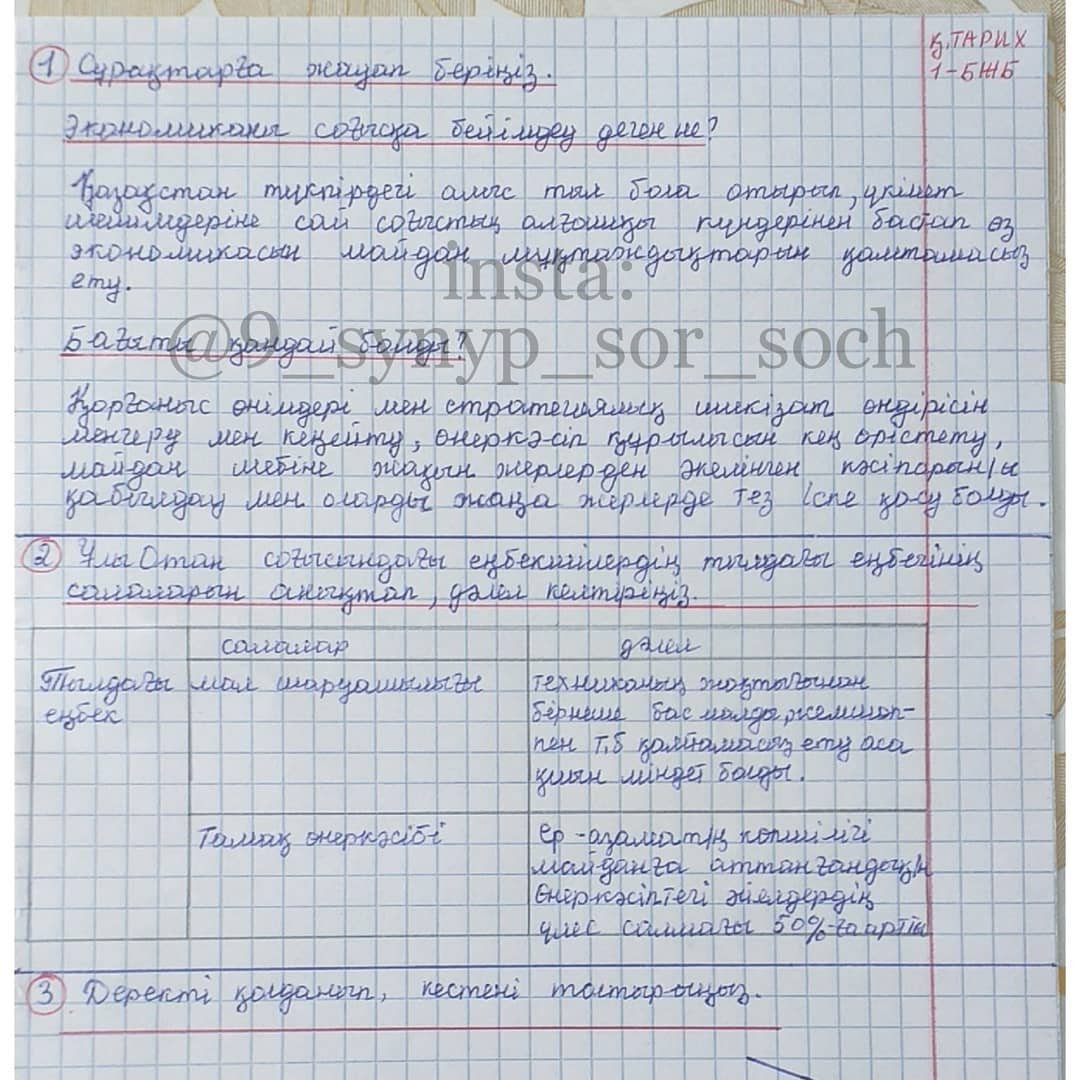 Қ.ТАРИХ
1-БЖБ
1 Сұрақтарға жауап беріңіз.
Экономиканы соғысқа бейімдеу деген не?
Қазақстан түкпірдегі алыс тыл бола отырып, үкімет
шешімдеріне сай соғыстың алғашқы күндерінен бастап өз
экономикасын майдан мұқтаждықтарын қамтамасыз
ету.
insta:
Бағыты қандай болды?
@9_synyp_sor_soch
Қорғаныс өнімдері мен стратегиялық шикізат өндірісін
меңгеру мен кеңейту, өнеркәсіп құрылысын кең өрістету,
майдан шебіне жақын жерлерден әкелінген кәсіпорын/ы
қабылдау мен оларды жаңа жерлерде тез іске қосу болды.
2 Ұлы Отан соғысындағы еңбекшілердің тылдағы еңбегінің
салаларын анықтап, дәлел келтіріңіз.
салалар дәлел
Тылдағы мал шаруашылығы техниканың жоқтығынан
еңбек бірнеше бас малды, жемшөп-
пен т.б қамтамасыз ету аса
қиын міндет болды.
Тамақ өнеркәсібі Ер-азамат/ң көпшілігі
майданға аттанғандық/н
Өнеркәсіптегі әйелдердің
үлес салмағы 50%-ға артты
3 Деректі қолданып, кестені толтырыңыз.